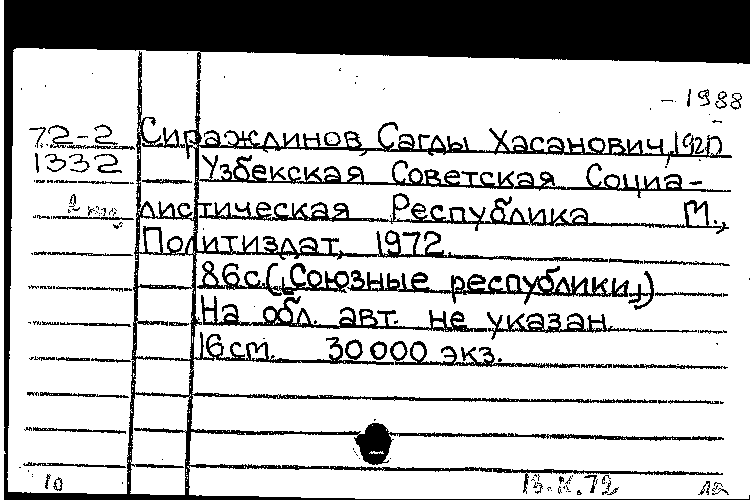 - 1988
72-2 Сираждинов, Сагды Хасанович, 1920
1332 Узбекская Советская Социа-
2 экз листическая Республика М.,
Политиздат, 1972.
86с. („Союзные республики„)
На обл. авт. не указан.
16 cm. 30 000 экз.
10 13.X.72